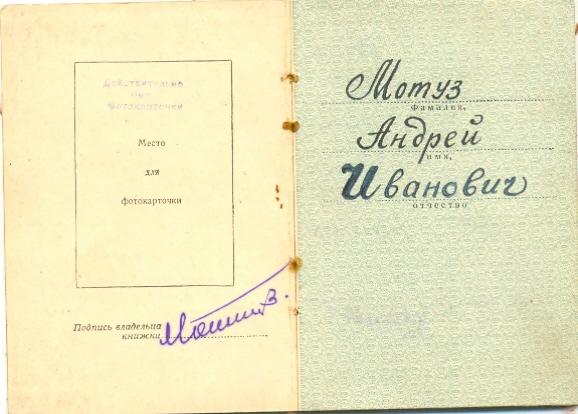 Действительно
без
фотокарточки
Место
для
фотокарточки
Подпись владельца
книжки
Мотуз
Мотуз
фамилия,
Андрей
имя,
Иванович
отчество